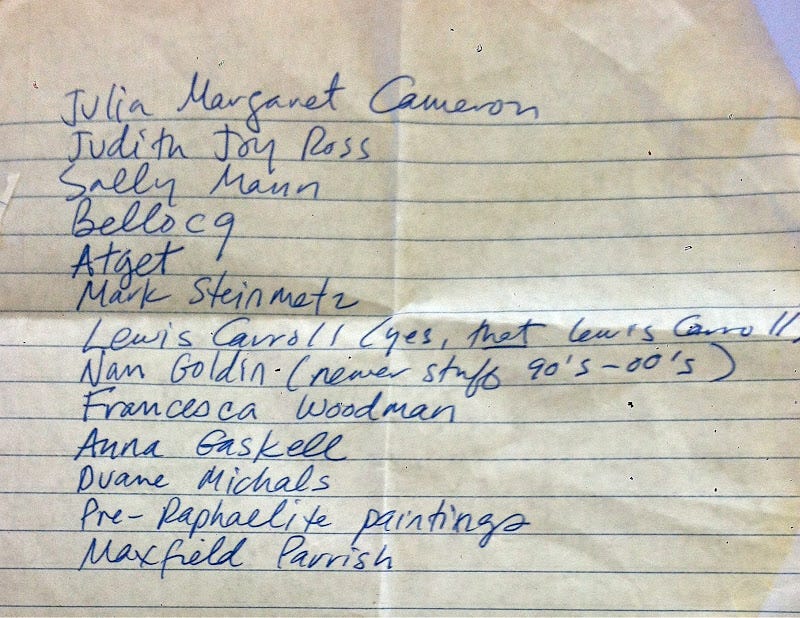 Julia Margaret Cameron
Judith Joy Ross
Sally Mann
Bellocq
Atget
Mark Steinmetz
Lewis Carroll (yes, that Lewis Carroll)
Nan Goldin (newer stuff 90's-00's)
Francesca Woodman
Anna Gaskell
Duane Michals
Pre-Raphaelite paintings
Maxfield Parrish